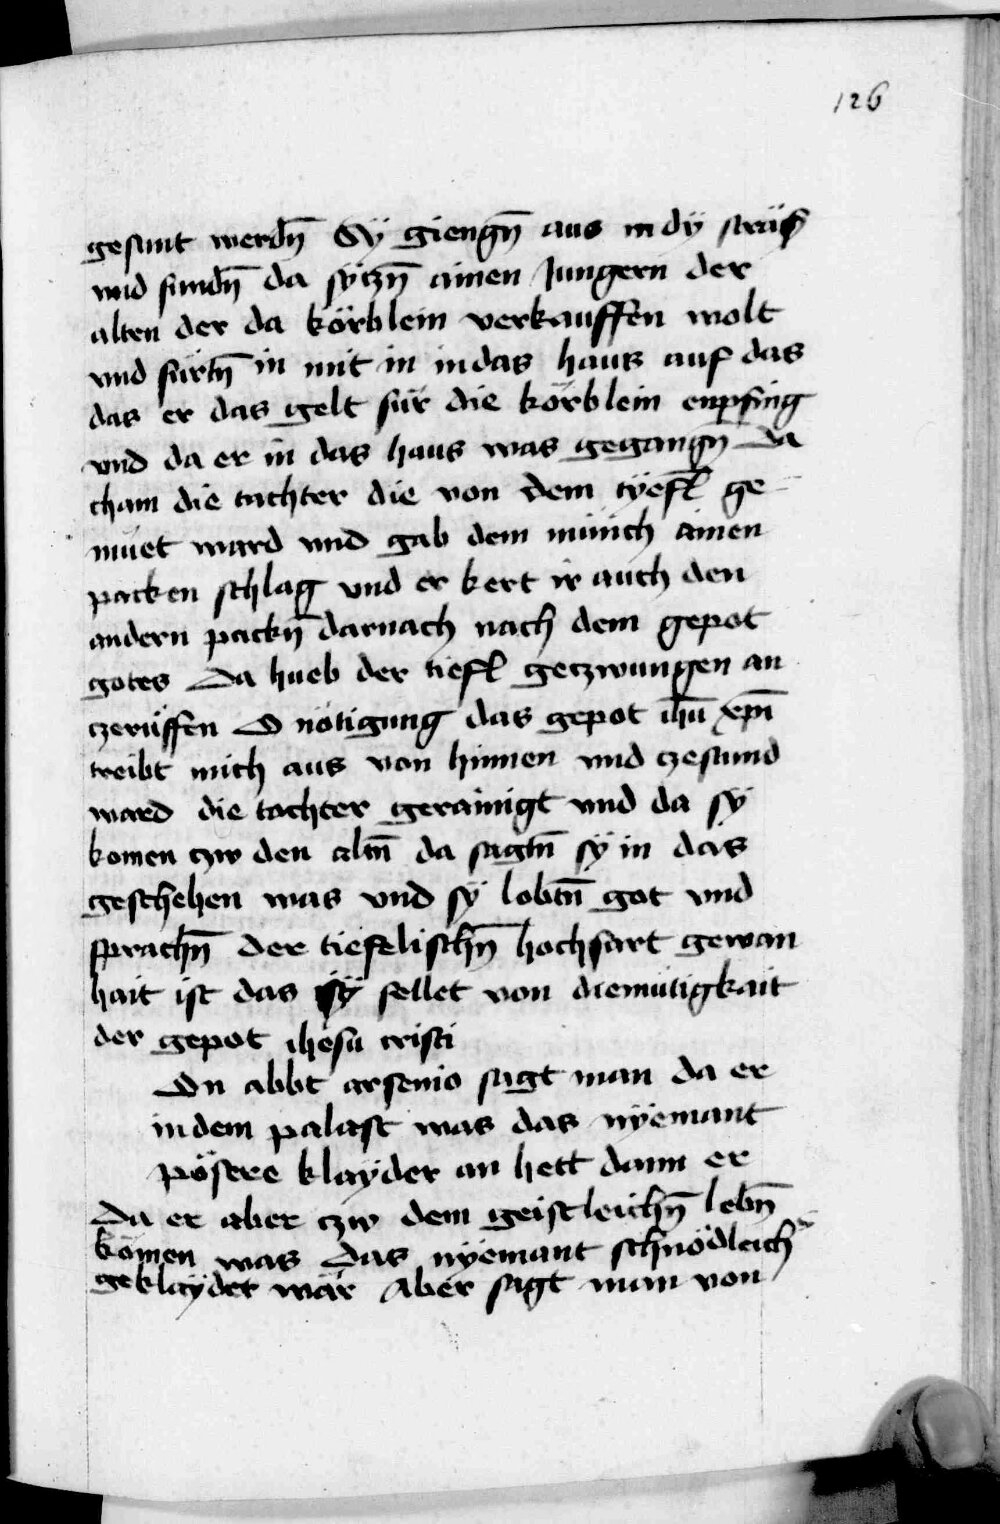 126
gesunt werdn̄ Sÿ giengn̄ aus in dÿ
vnd fundn̄ da sÿtzn̄ ainen Jungern der
alten der da körblein verkauffen wolt
vnd fürtn̄ in mit in in das haus auf das
das er das gelt für die körblein enpfing
vnd da er in das haus was gegangn̄ Da
cham die tachter die von dem tÿefl ge
müet ward vnd gab dem münich ainen
packen schlag vnd er kert ir auch den
andern packn̄ darnach nach dem gepot
gotes Da hueb der tiefl getzwungen an
czerüffen O nötigung das gepot ihū xp̄i
treibt mich aus von hinnen vnd czestund
ward die tochter gerainigt vnd da sÿ
komen czw den altn̄ da sagtn̄ sÿ in das
geschehen was vnd sÿ lobtn̄ got vnd
sprachn̄ der tiefelischn̄ hochfart gewan
hait ist das sÿ fellet von diemütigkait
der gepot ihesu cristi
On abbt arsenio sagt man da er
in dem palast was das nÿemant
pösere klaÿder an hett dann er
Da er aber czw dem geistleichn̄ lebn̄
komen was Das nÿemant schnödleich
geklaÿdet wär Aber sagt man von